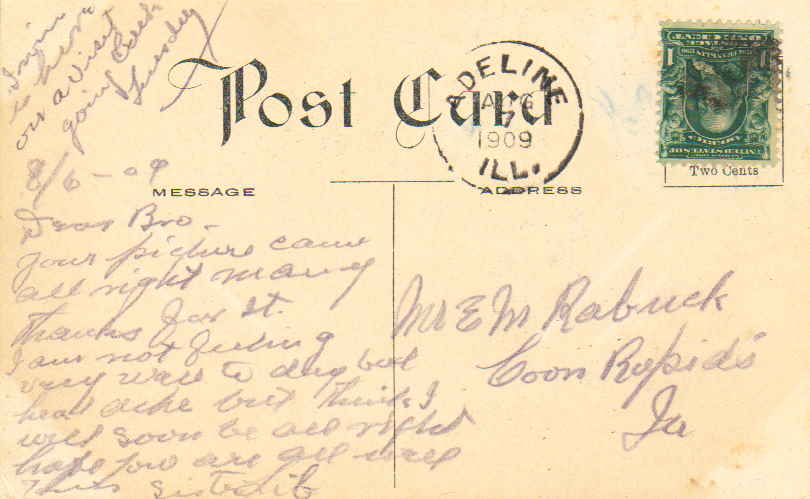 on a visit
going back
Tuesday
Post Card
ADELINE
AUG
7
1909
ILL.
Two Cents
MESSAGE
ADDRESS
8/6-09
Dear Bro-
your picture came
all right many
thanks for it.
I am not feeling
very well to day bad
head ache but think I
will soon be all right
hope you are all well
Mr E M Rabuck
Coon Rapids
Ia